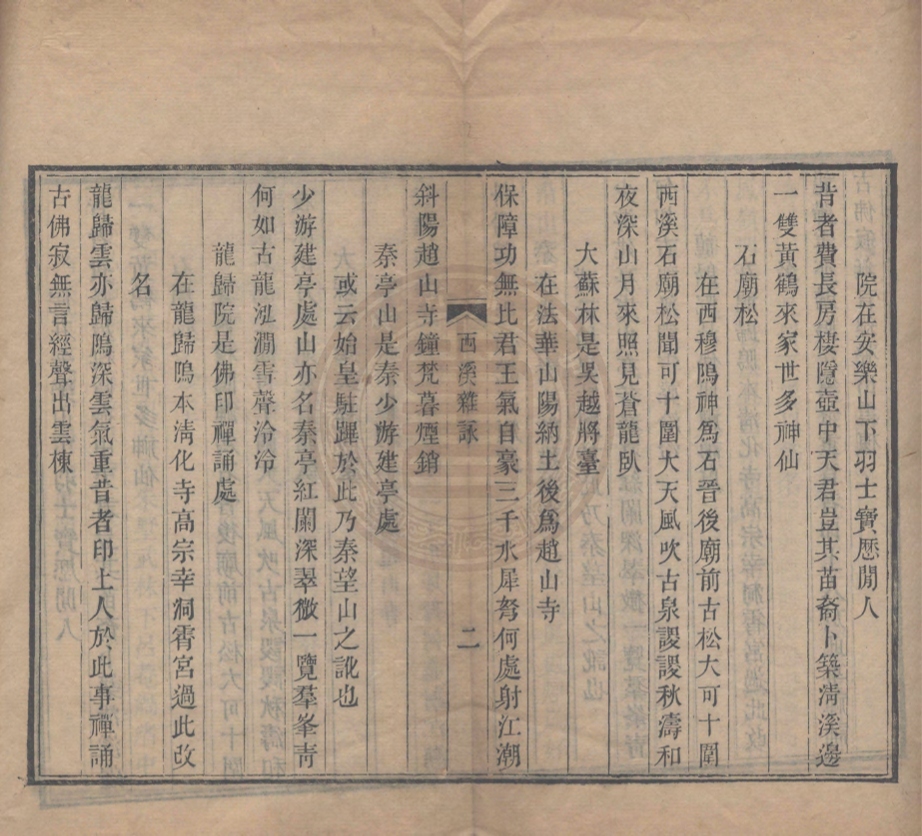 院在安樂山下羽士寶歷閒人
昔者費長房棲隱壺中天君豈其苗裔卜築淸溪邊
一雙黃鶴來家世多神仙
石廟松
在西穆隖神爲石晉後廟前古松大可十圍
西溪石廟松聞可十圍大天風吹古泉謖謖秋濤和
夜深山月來照見蒼龍臥
大蘇林是吳越將臺
在法華山陽納土後爲趙山寺
保障功無比君王氣自豪三千水犀弩何處射江潮
斜陽趙山寺鐘梵暮煙銷
西溪雜詠
二
秦亭山是秦少游建亭處
或云始皇駐蹕於此乃秦望山之訛也
少游建亭處山亦名秦亭紅闌深翠微一覽羣峯靑
何如古龍泓澗雪聲泠泠
龍歸院是佛印禪誦處
在龍歸隖本淸化寺高宗幸洞霄宮過此改
名
龍歸雲亦歸隖深雲氣重昔者印上人於此事禪誦
古佛寂無言經聲出雲棟